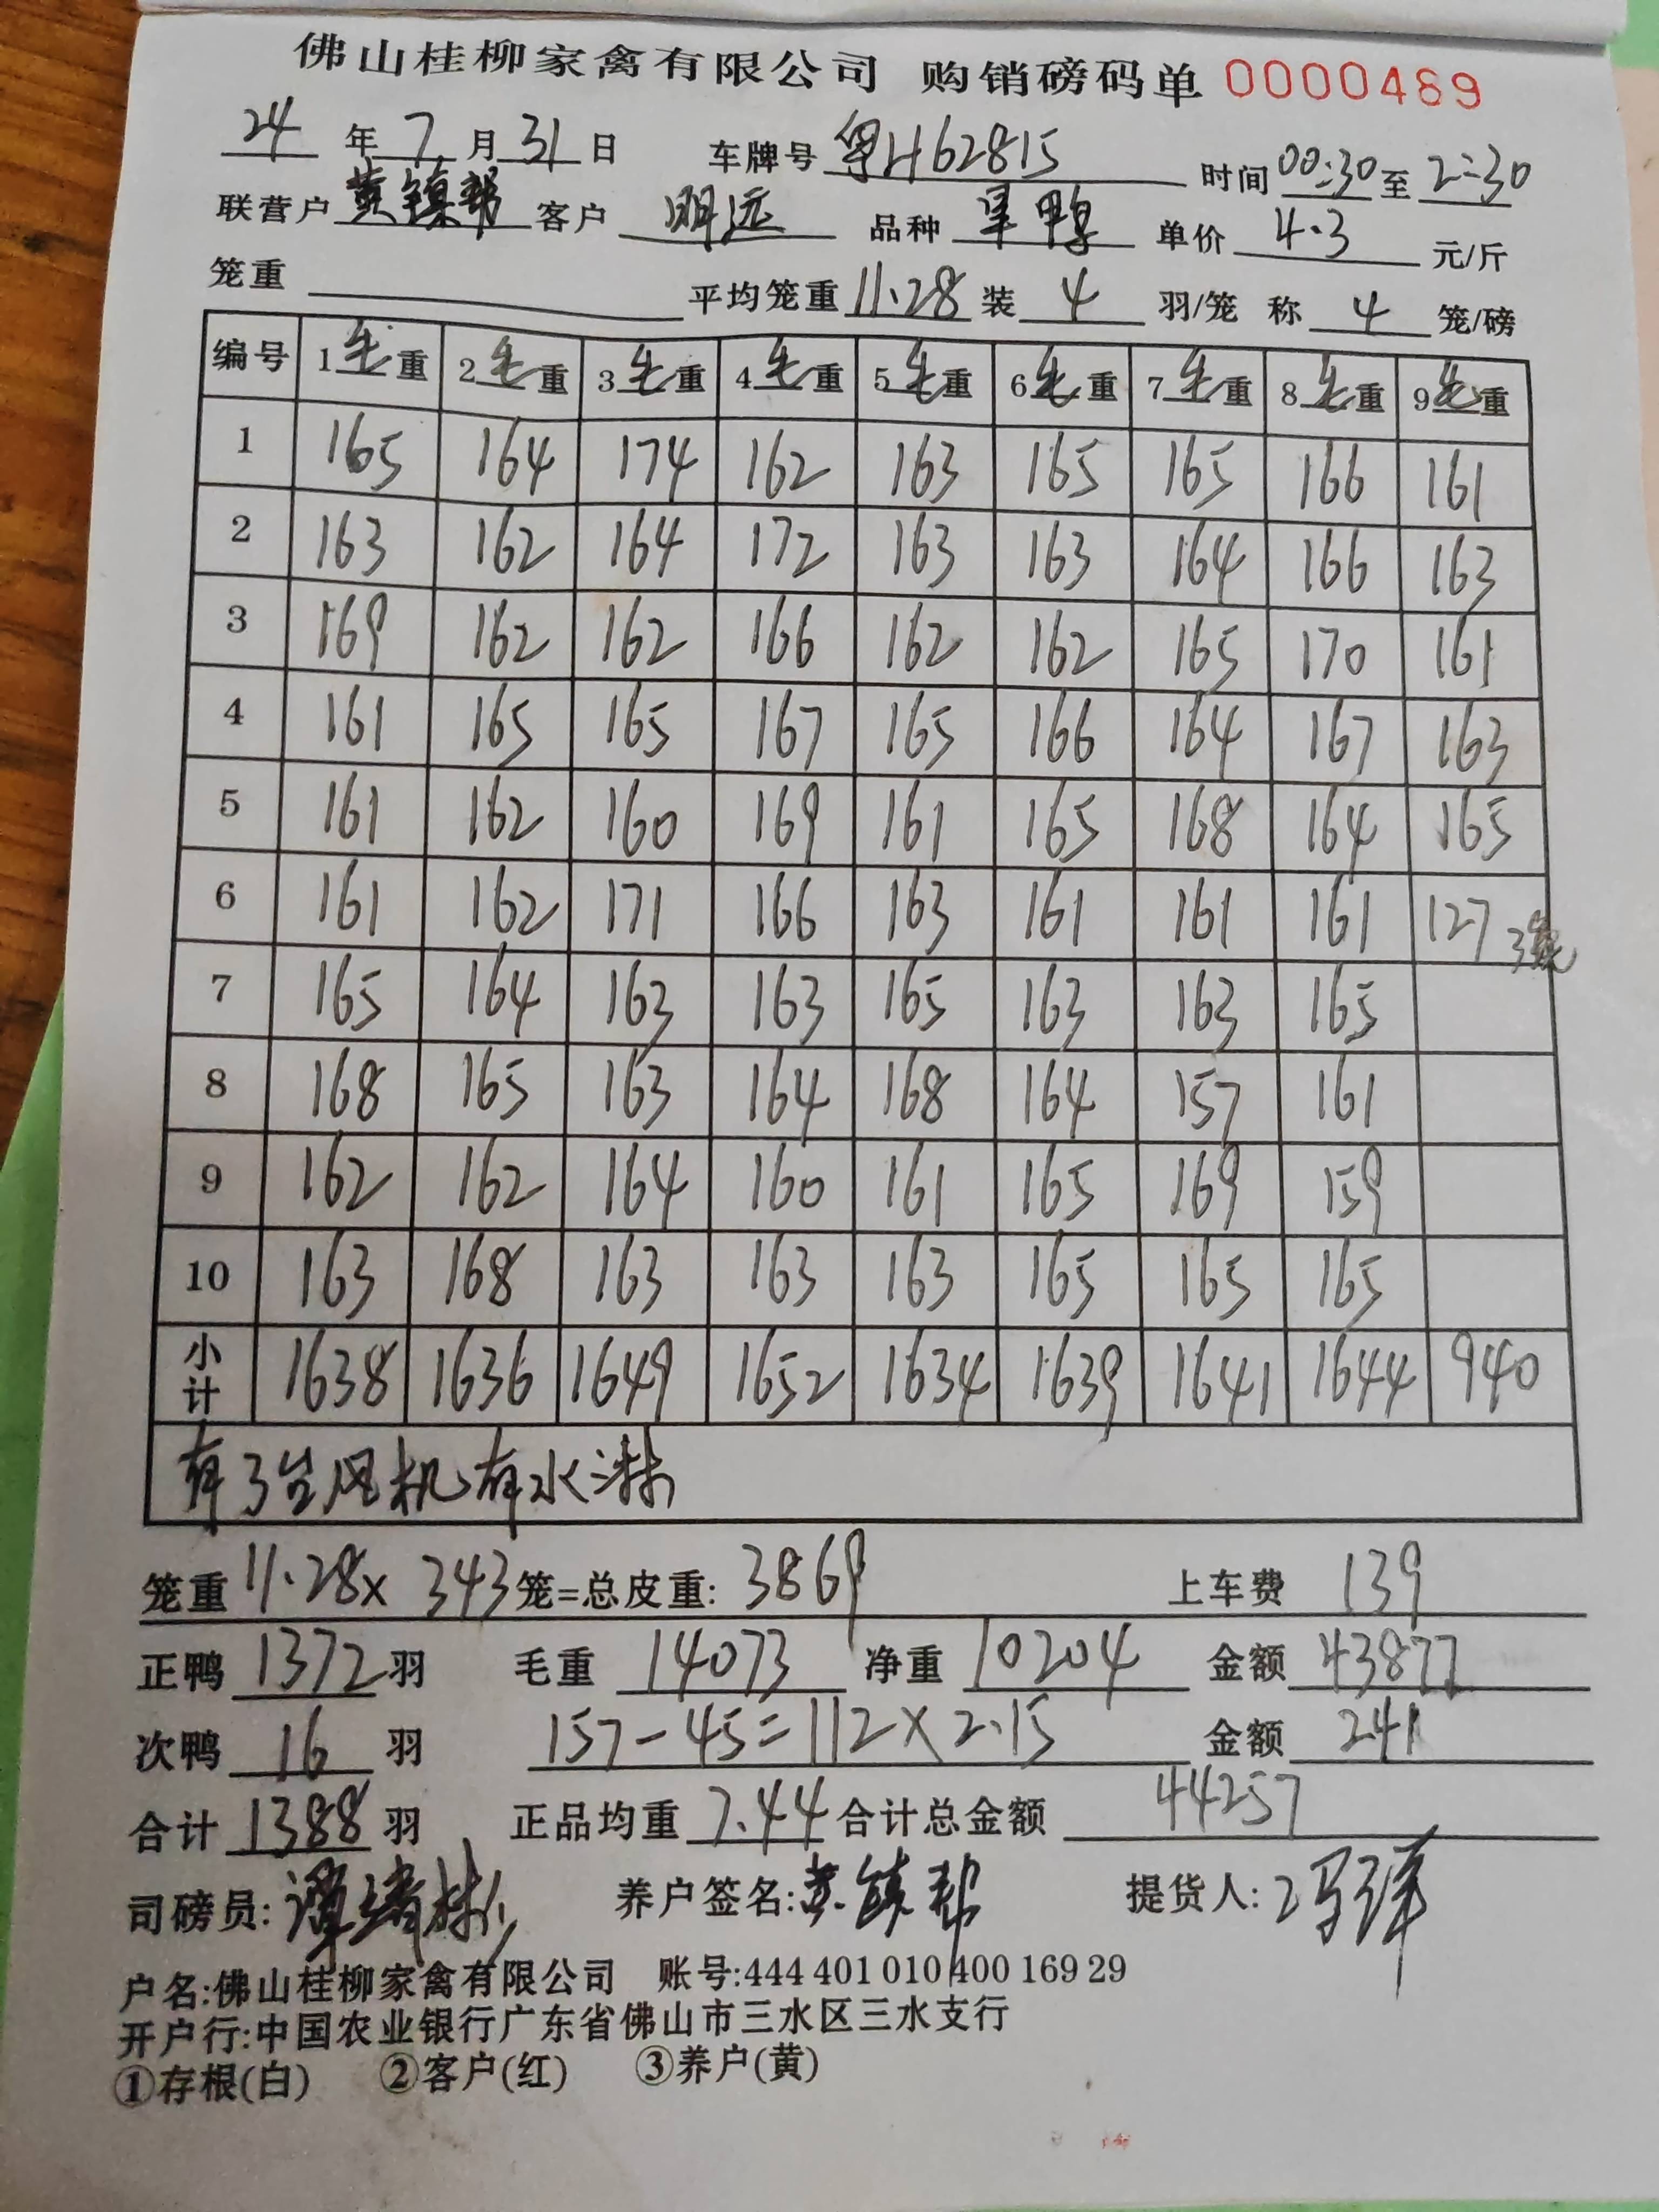 佛山桂柳家禽有限公司 购销磅码单 0000489
24年7月31日 车牌号粤H62815 时间00:30至2:30
联营户黄镇邦 客户明远 品种旱鸭 单价4.3元/斤
笼重 平均笼重11.28 装4羽/笼 称4笼/磅
编号 1毛重 2毛重 3毛重 4毛重 5毛重 6毛重 7毛重 8毛重 9毛重
1 165 164 174 162 163 165 165 166 161
2 163 162 164 172 163 163 164 166 163
3 169 162 162 166 162 162 165 170 161
4 161 165 165 167 165 166 164 167 163
5 161 162 160 169 161 165 168 164 165
6 161 162 171 166 163 161 161 161 127 3笼
7 165 164 163 163 165 163 163 165
8 168 165 163 164 168 164 157 161
9 162 162 164 160 161 165 169 159
10 163 168 163 163 163 165 165 165
小计 1638 1636 1649 1652 1634 1639 1641 1644 940
有3台风机有水淋
笼重11.28×343笼=总皮重:3869 上车费139
正鸭1372羽 毛重14073 净重10204 金额43877
次鸭16羽 157-45=112×2.15 金额241
合计1388羽 正品均重7.44 合计总金额44257
司磅员: 养户签名:黄镇邦 提货人:
户名:佛山桂柳家禽有限公司 账号:444 401 010 400 169 29
开户行:中国农业银行广东省佛山市三水区三水支行
①存根(白) ②客户(红) ③养户(黄)